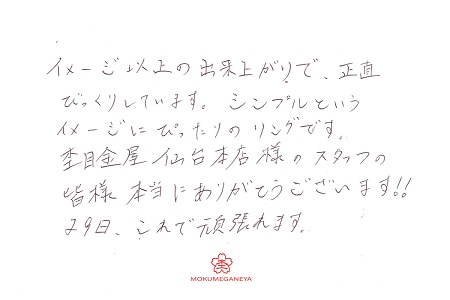 イメージ以上の出来上がりで、正直
びっくりしています。シンプルという
イメージにぴったりのリングです。
杢目金屋 仙台本店様のスタッフの
皆様 本当にありがとうございます!!
29日、これで頑張れます。
MOKUMEGANEYA